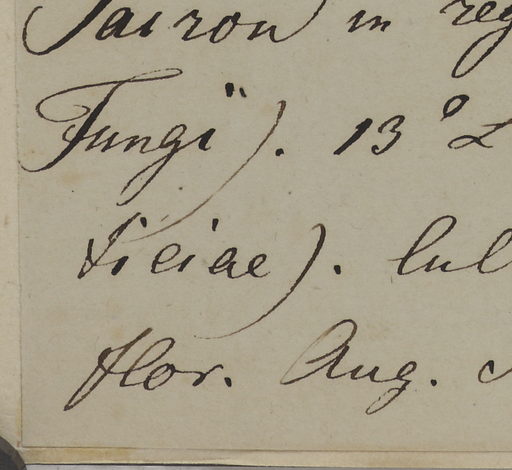 Tairon in reg
Fungi"). 13° L
Siciae). lul
flor. Aug.